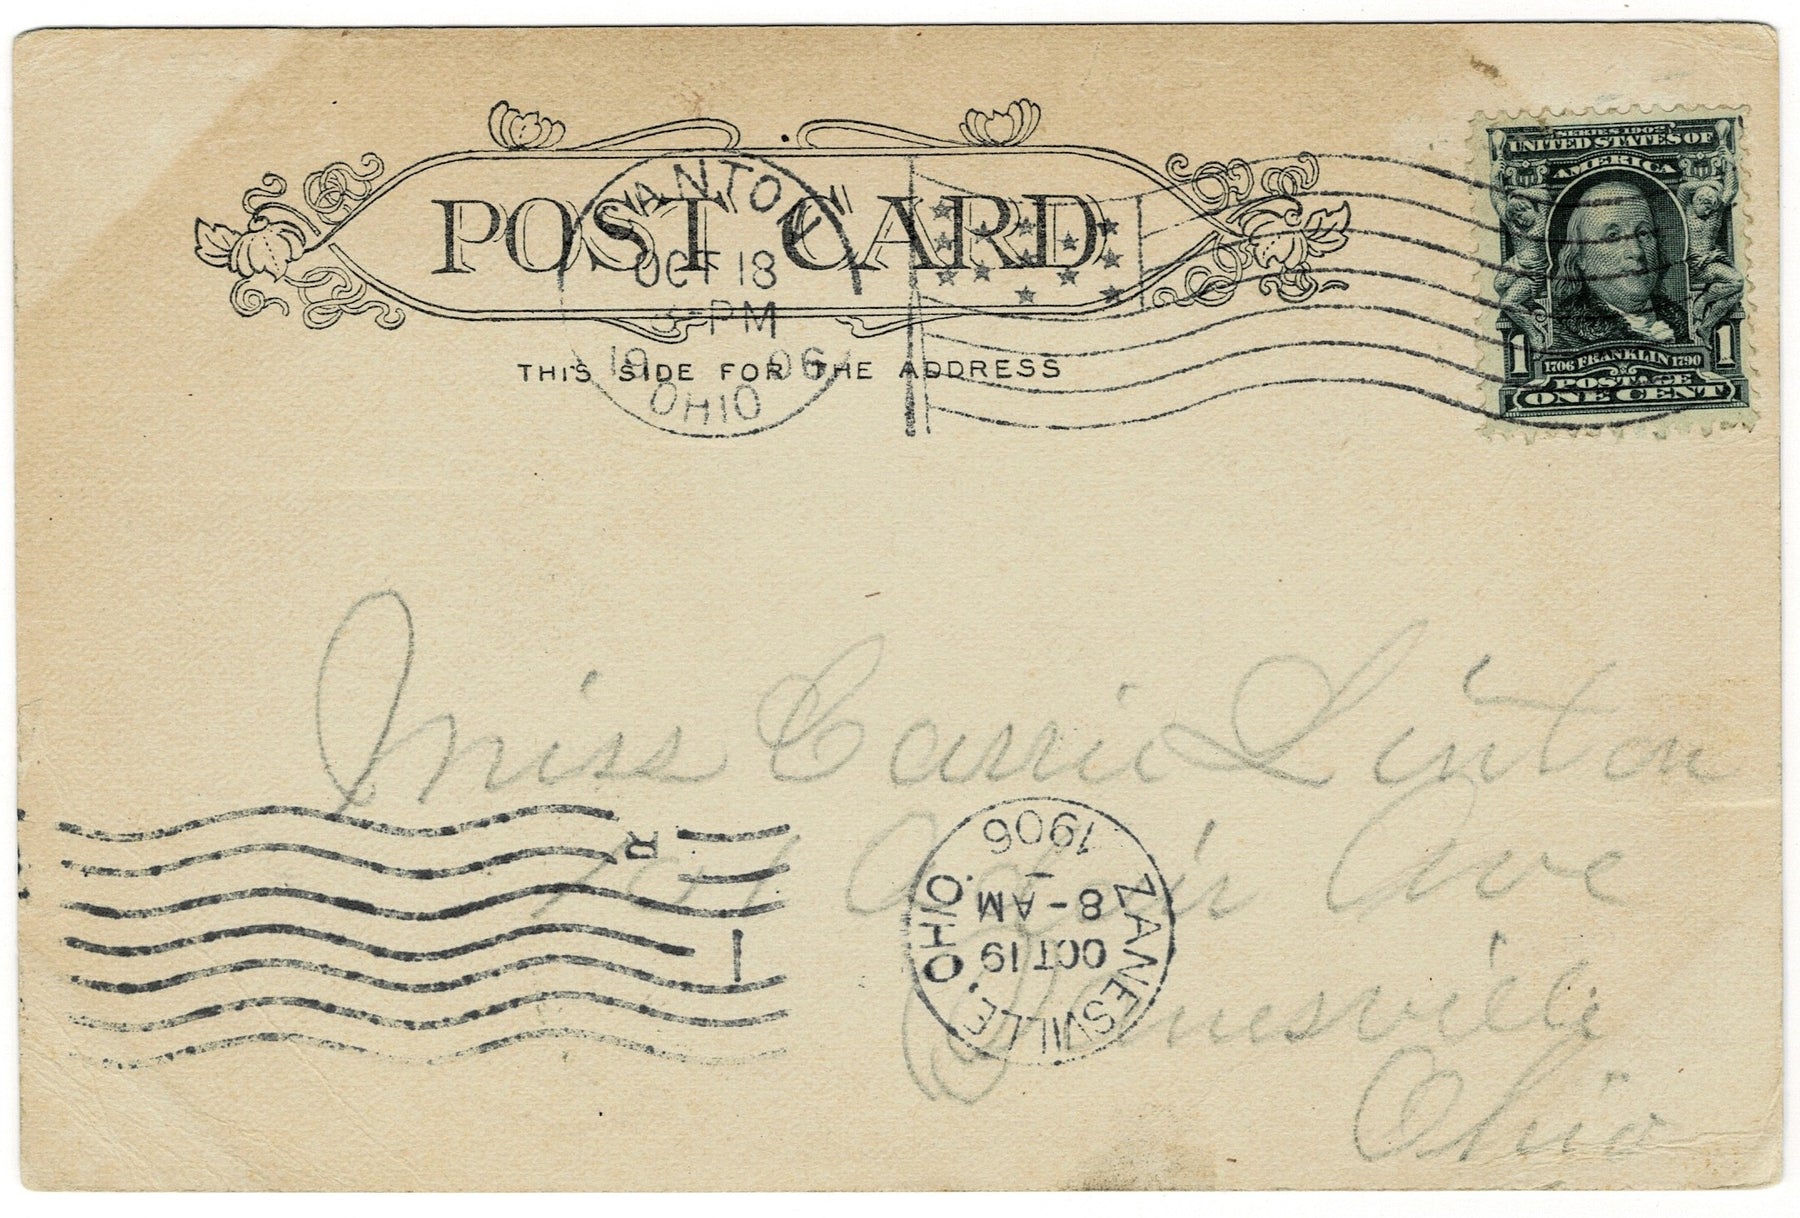 POST CARD
CANTON
OCT 18
3-PM
1906
OHIO
THIS SIDE FOR THE ADDRESS
SERIES 1902
UNITED STATES OF
AMERICA
1 1706 FRANKLIN 1790 1
POSTAGE
ONE CENT
Miss Carrie Linton
701 Adair Ave
Zanesville
Ohio
R
1
ZANESVILLE. OHIO.
OCT 19
8-AM
1906